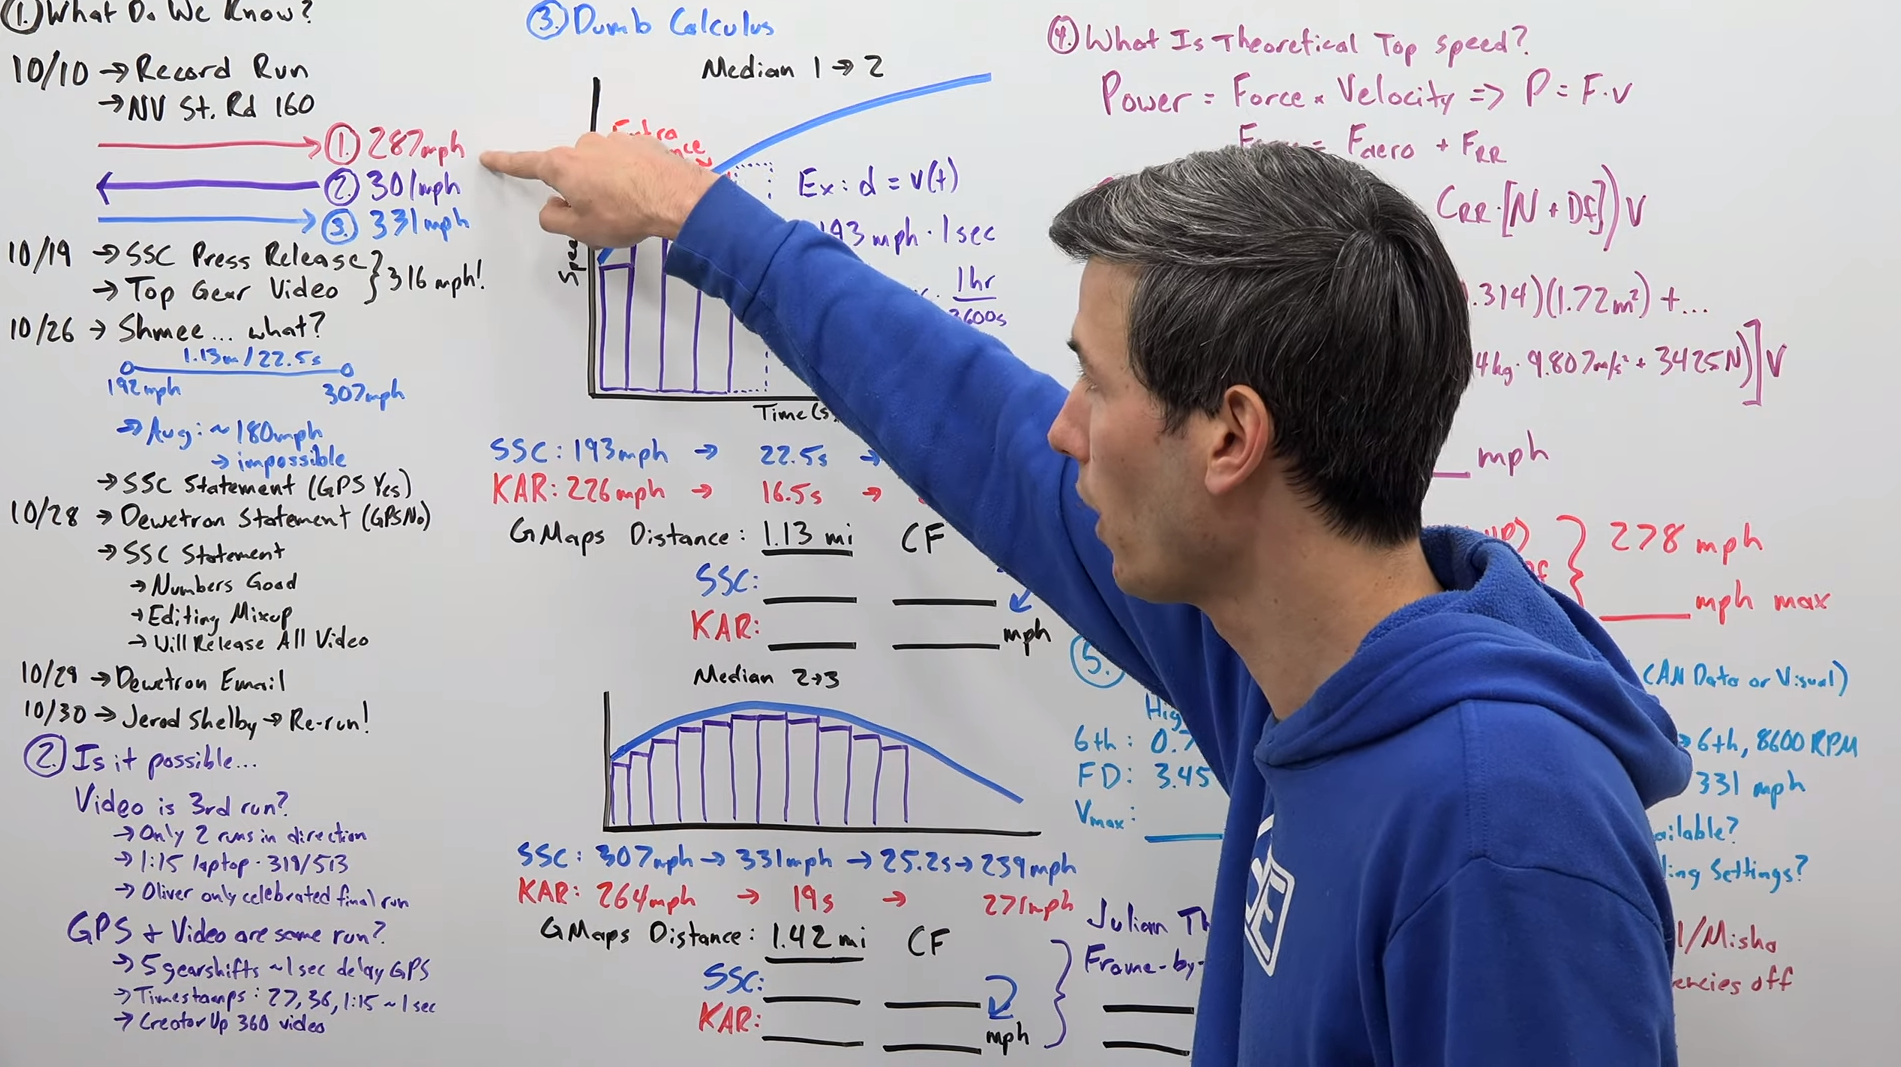 1. What Do We Know?
10/10 → Record Run
→ NV St. Rd 160
1. 287mph
2. 301mph
3. 331mph
10/19 → SSC Press Release
→ Top Gear Video } 316 mph!
10/26 → Shmee... what?
1.13m/22.5s
192mph 307mph
→ Avg: ~180mph
→ impossible
→ SSC Statement (GPS Yes)
10/28 → Dewetron Statement (GPS No)
→ SSC Statement
→ Numbers Good
→ Editing Mixup
→ Will Release All Video
10/29 → Dewetron Email
10/30 → Jerod Shelby → Re-run!
2. Is it possible...
Video is 3rd run?
→ Only 2 runs in direction
→ 1:15 laptop · 319/513
→ Oliver only celebrated final run
GPS + Video are same run?
→ 5 gearshifts ~1sec delay GPS
→ Timestamps: 27, 36, 1:15 ~1sec
→ CreatorUp 360 video
3. Dumb Calculus
Median 1 → 2
Extra
Ex: d = v(t)
193 mph · 1 sec
1hr
3600s
Time (s)
SSC: 193mph → 22.5s →
KAR: 226mph → 16.5s →
GMaps Distance: 1.13 mi CF
SSC:
KAR:
mph
Median 2→3
SSC: 307mph → 331mph → 25.2s → 239mph
KAR: 264mph → 19s → 271mph
GMaps Distance: 1.42 mi CF
SSC:
KAR:
mph
Julian Th
Frame-by-
4. What Is Theoretical Top Speed?
Power = Force × Velocity => P = F·v
Faero + FRR
CRR·[N + Df])V
.314)(1.72m²) + ...
4kg · 9.807m/s² + 3425N)]V
mph
278 mph
mph max
5.
(CAN Data or Visual)
6th: 0.7
→ 6th, 8600 RPM
FD: 3.45
331 mph
Vmax:
ailable?
ling Settings?
l/Misha
encies off